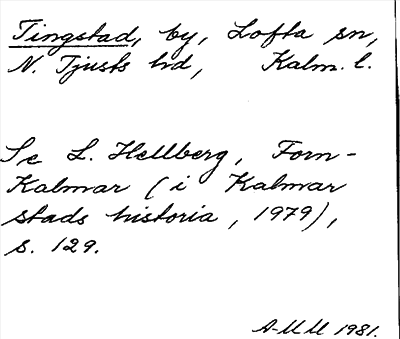 Tingstad, by, Lofta sn,
N. Tjusts hd, Kalm. l.
Se L. Hellberg, Forn-
Kalmar (i Kalmar
stads historia, 1979),
s. 129.
A-MM 1981.